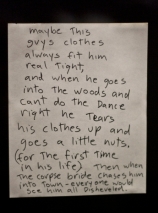 maybe This
guys clothes
always fit him
real Tight,
and when he goes
into The woods and
cant do the Dance
right he Tears
his clothes up and
goes a little nuts,
(for The first Time
in his life) Then when
The corpse bride chases him
into Town - everyone would
see him all Disheveled.